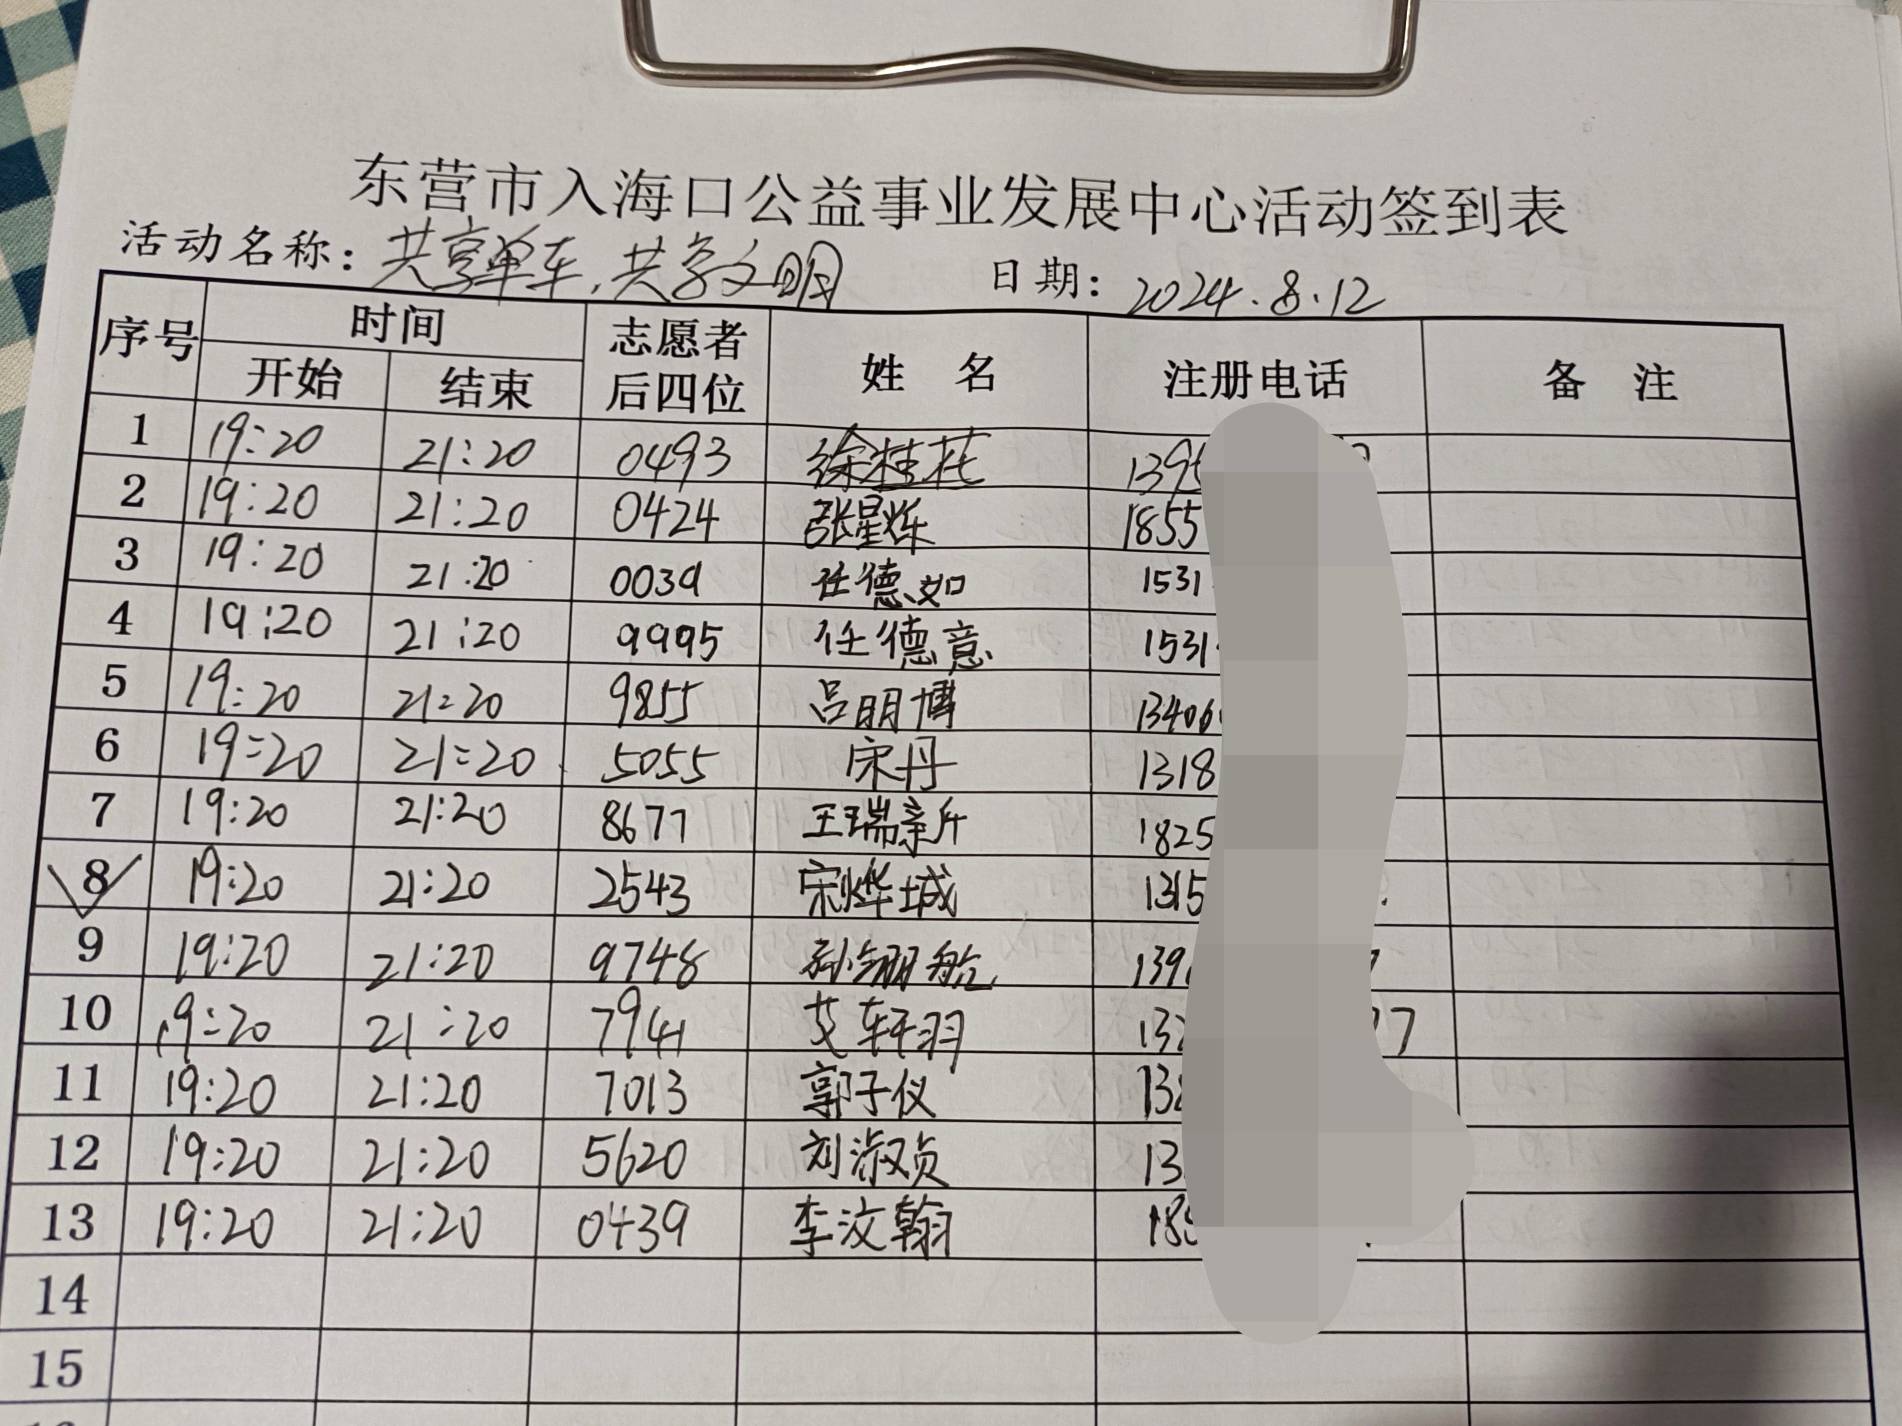 东营市入海口公益事业发展中心活动签到表
活动名称：共享单车，共享文明 日期：2024.8.12
序号 时间 志愿者后四位 姓名 注册电话 备注
开始 结束
1 19:20 21:20 0493 徐桂花 1395
2 19:20 21:20 0424 张星烁 1855
3 19:20 21:20 0039 任德如 1531
4 19:20 21:20 9995 任德意 1531
5 19:20 21:20 9855 吕明博 13406
6 19:20 21:20 5055 宋丹 1318
7 19:20 21:20 8677 王瑞新 1825
8 19:20 21:20 2543 宋烨城 1315
9 19:20 21:20 9748 孙翊航 139
10 19:20 21:20 7941 艾轩羽 132 7
11 19:20 21:20 7013 郭子仪 138
12 19:20 21:20 5620 刘淑贞 13
13 19:20 21:20 0439 李汶翰 18
14
15